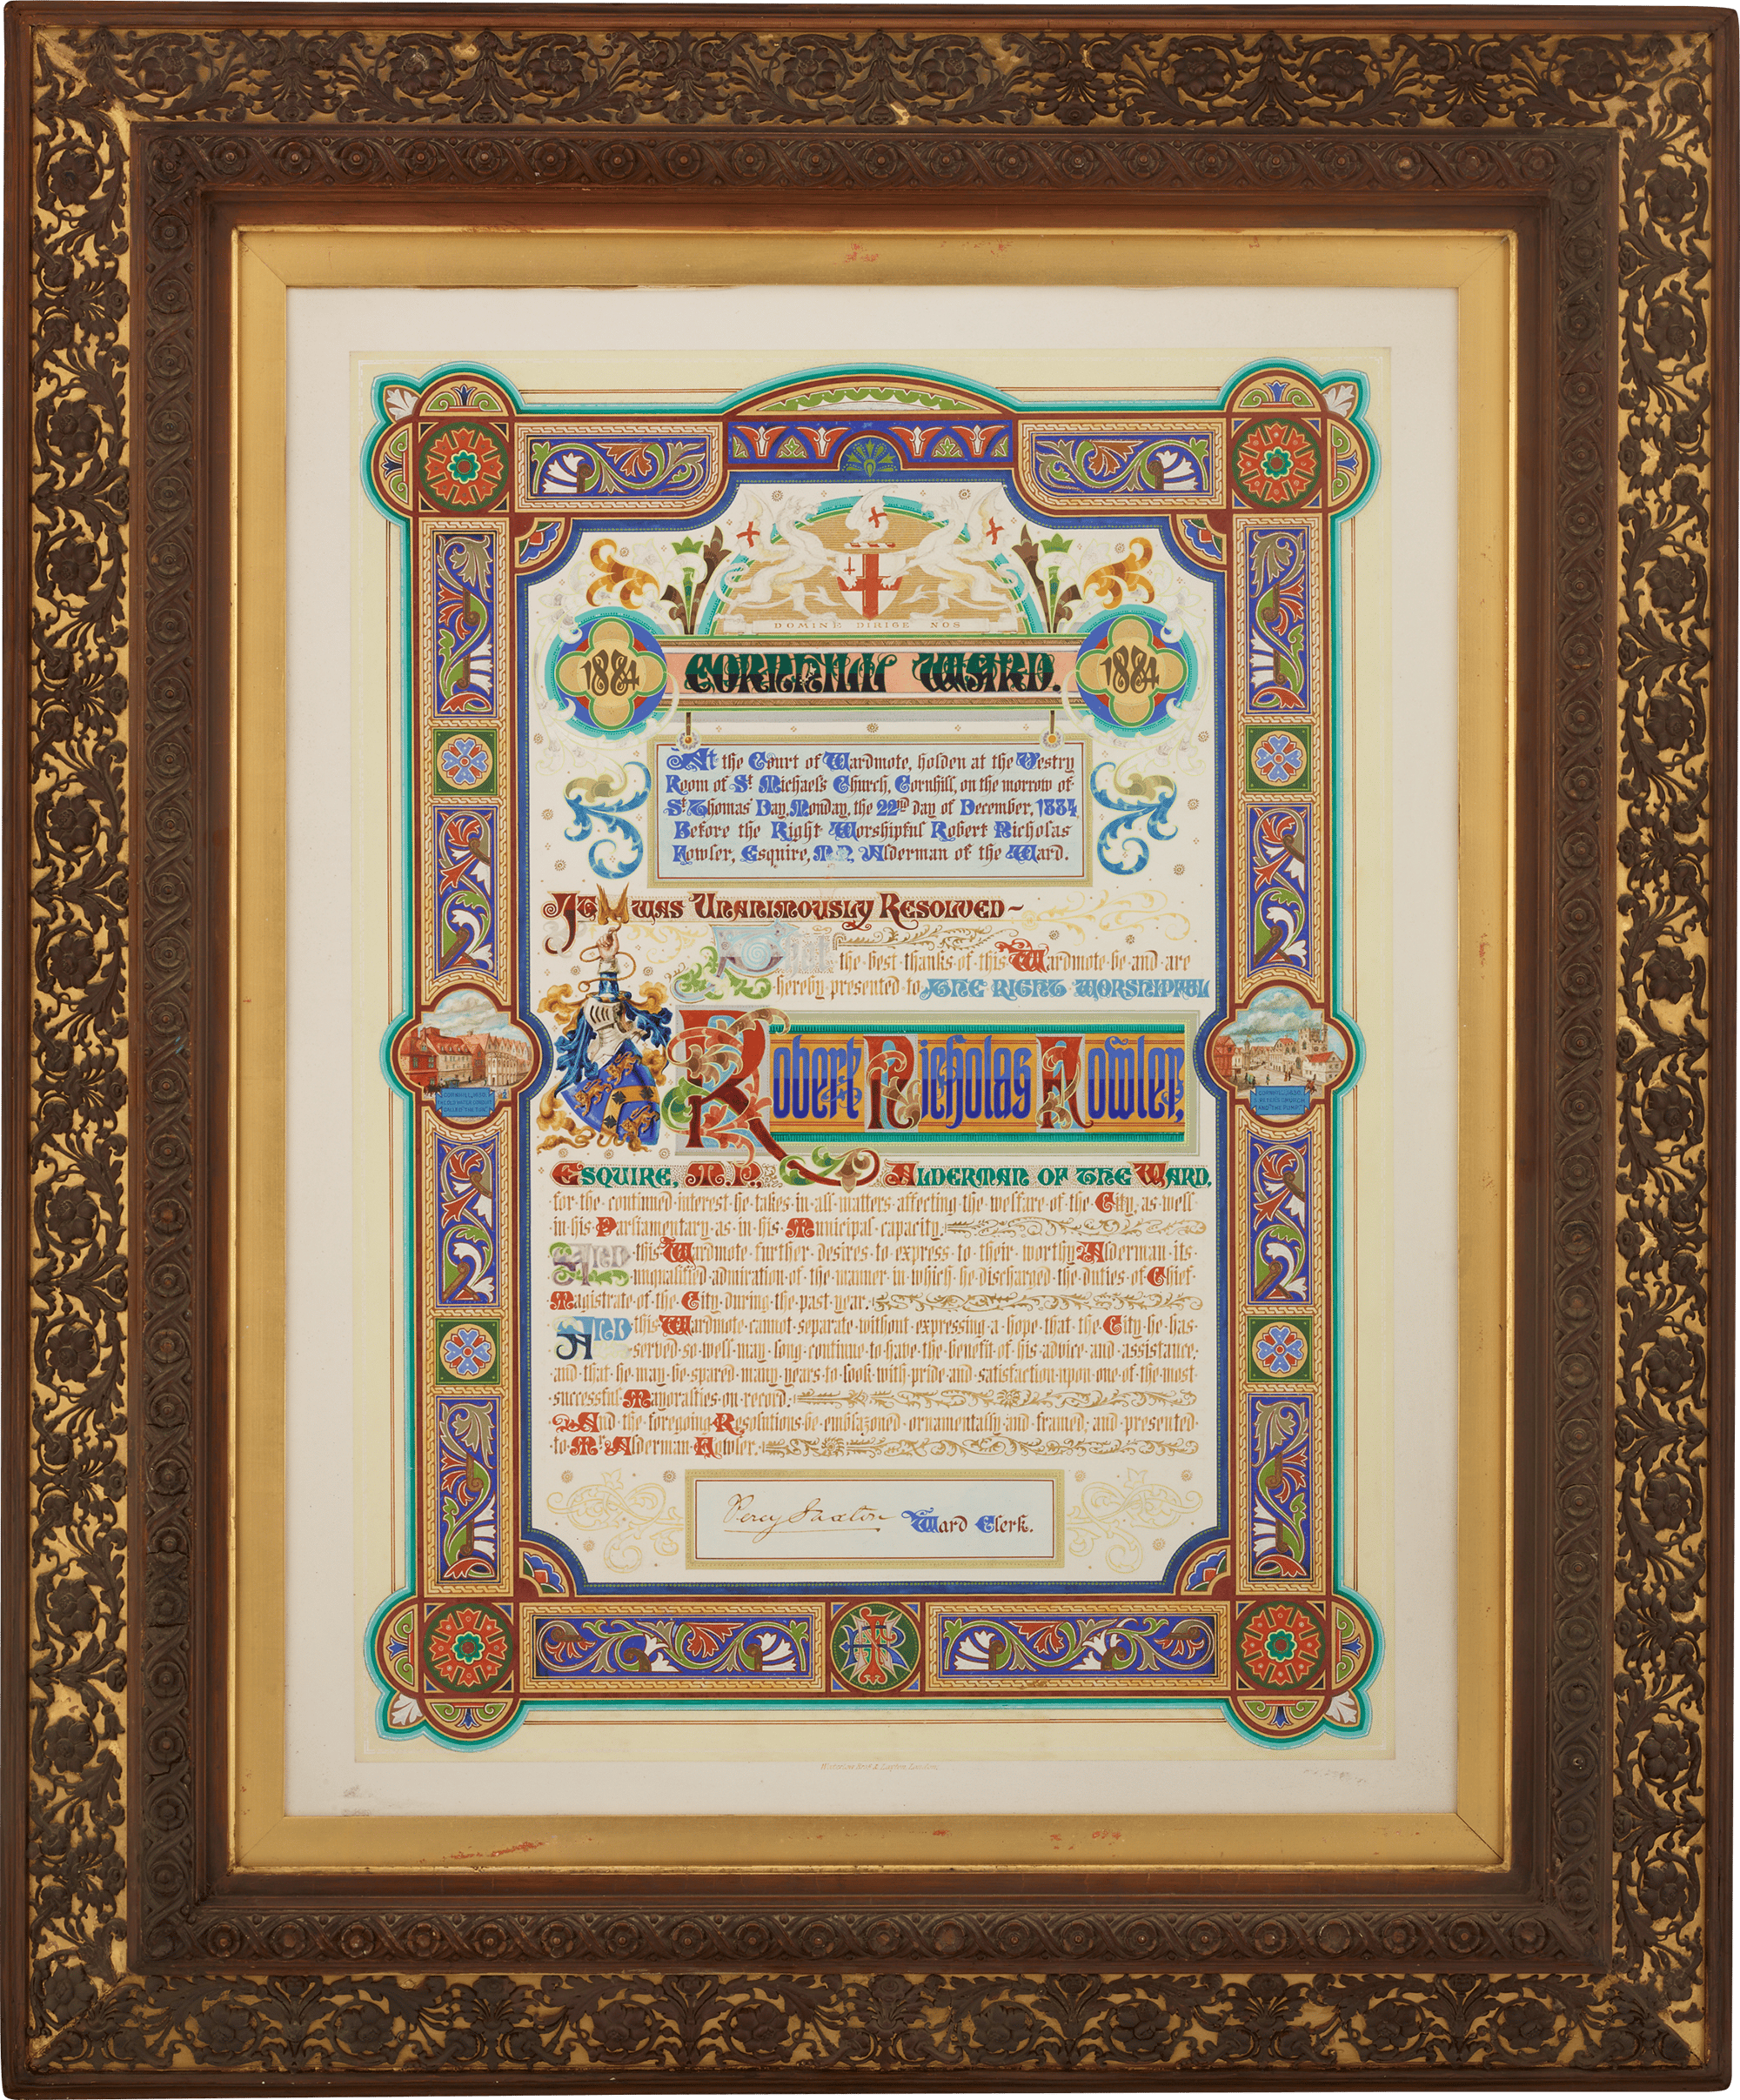 DOMINE DIRIGE NOS
1884 CORNHILL WARD. 1884
At the Court of Wardmote, holden at the Vestry
Room of St. Michael's Church, Cornhill, on the morrow of
St. Thomas' Day, Monday, the 22nd day of December, 1884,
Before the Right Worshipful Robert Nicholas
Fowler, Esquire, M.P. Alderman of the Ward.
IT WAS UNANIMOUSLY RESOLVED ~
That
the best thanks of this Wardmote be and are
hereby presented to THE RIGHT WORSHIPFUL
Robert Nicholas Fowler,
CORNHILL, 1630
ESQUIRE, M.P., ALDERMAN OF THE WARD,
for the continued interest he takes in all matters affecting the welfare of the City, as well
in his Parliamentary as in his Municipal capacity.
AND this Wardmote further desires to express to their worthy Alderman its
unqualified admiration of the manner in which he discharged the duties of Chief
Magistrate of the City during the past year.
AND this Wardmote cannot separate without expressing a hope that the City he has
served so well may long continue to have the benefit of his advice and assistance;
and that he may be spared many years to look with pride and satisfaction upon one of the most
successful Mayoralties on record.
And the foregoing Resolutions be emblazoned ornamentally and framed, and presented
to Mr. Alderman Fowler.
Percy Saxton Ward Clerk.